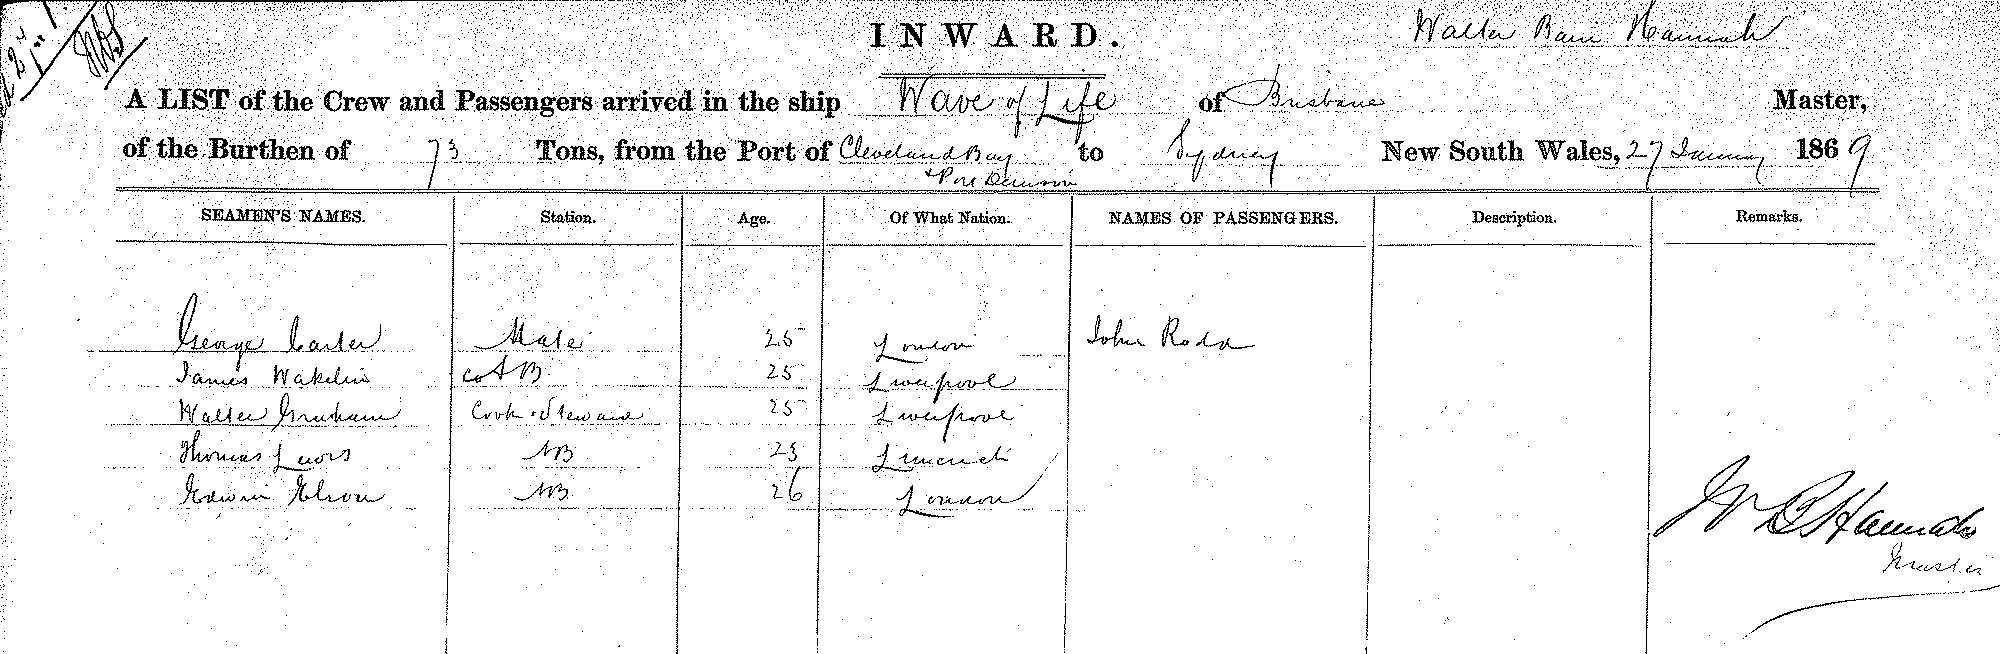 INWARD.
Walter Bain Hannah
A LIST of the Crew and Passengers arrived in the ship Wave of Life of Brisbane Master,
of the Burthen of 73 Tons, from the Port of Cleveland Bay to Sydney New South Wales, 27 January 1869
& Port Denison
SEAMEN'S NAMES. Station. Age. Of What Nation. NAMES OF PASSENGERS. Description. Remarks.
George Carter Mate 25 London John Rodd
James Wakelin AB 25 Liverpool
Walter Graham Cook & Steward 25 Liverpool
Thomas Lewis AB 23
Edwin AB 26 London
W B Hannah
Master